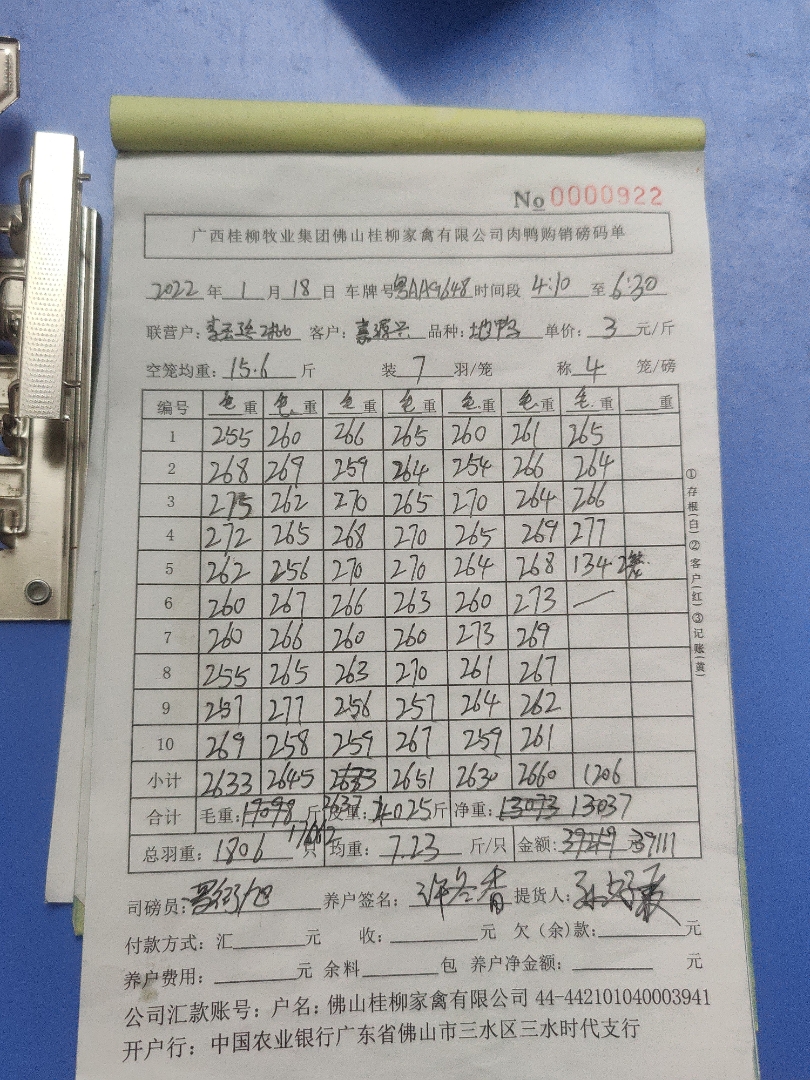 No 0000922
广西桂柳牧业集团佛山桂柳家禽有限公司肉鸭购销磅码单
2022 年 1 月 18 日 车牌号 粤AA9648 时间段 4:10 至 6:30
联营户: 客户: 嘉源兴 品种: 地鸭 单价: 3 元/斤
空笼均重: 15.6 斤 装 7 羽/笼 称 4 笼/磅
编号 毛重 毛重 毛重 毛重 毛重 毛重 毛重 重
1 255 260 266 265 260 261 265
2 268 269 259 264 254 266 264
3 275 262 270 265 270 264 266
4 272 265 268 270 265 269 277
5 262 256 270 270 264 268 134 2笼
6 260 267 266 263 260 273 —
7 260 266 260 260 273 269
8 255 265 263 270 261 267
9 257 277 256 257 264 262
10 269 258 259 267 259 261
小计 2633 2645 2633 2637 2651 2630 2660 1206
合计 毛重: 17098 17062 斤 皮重: 4025 斤 净重: 13073 13037
总羽重: 1806 只 均重: 7.23 斤/只 金额: 39219 39111 元
司磅员: 养户签名: 许冬香 提货人:
付款方式: 汇 元 收: 元 欠(余)款: 元
养户费用: 元 余料 包 养户净金额: 元
公司汇款账号: 户名: 佛山桂柳家禽有限公司 44-442101040003941
开户行: 中国农业银行广东省佛山市三水区三水时代支行
①存根(白)②客户(红)③记账(黄)